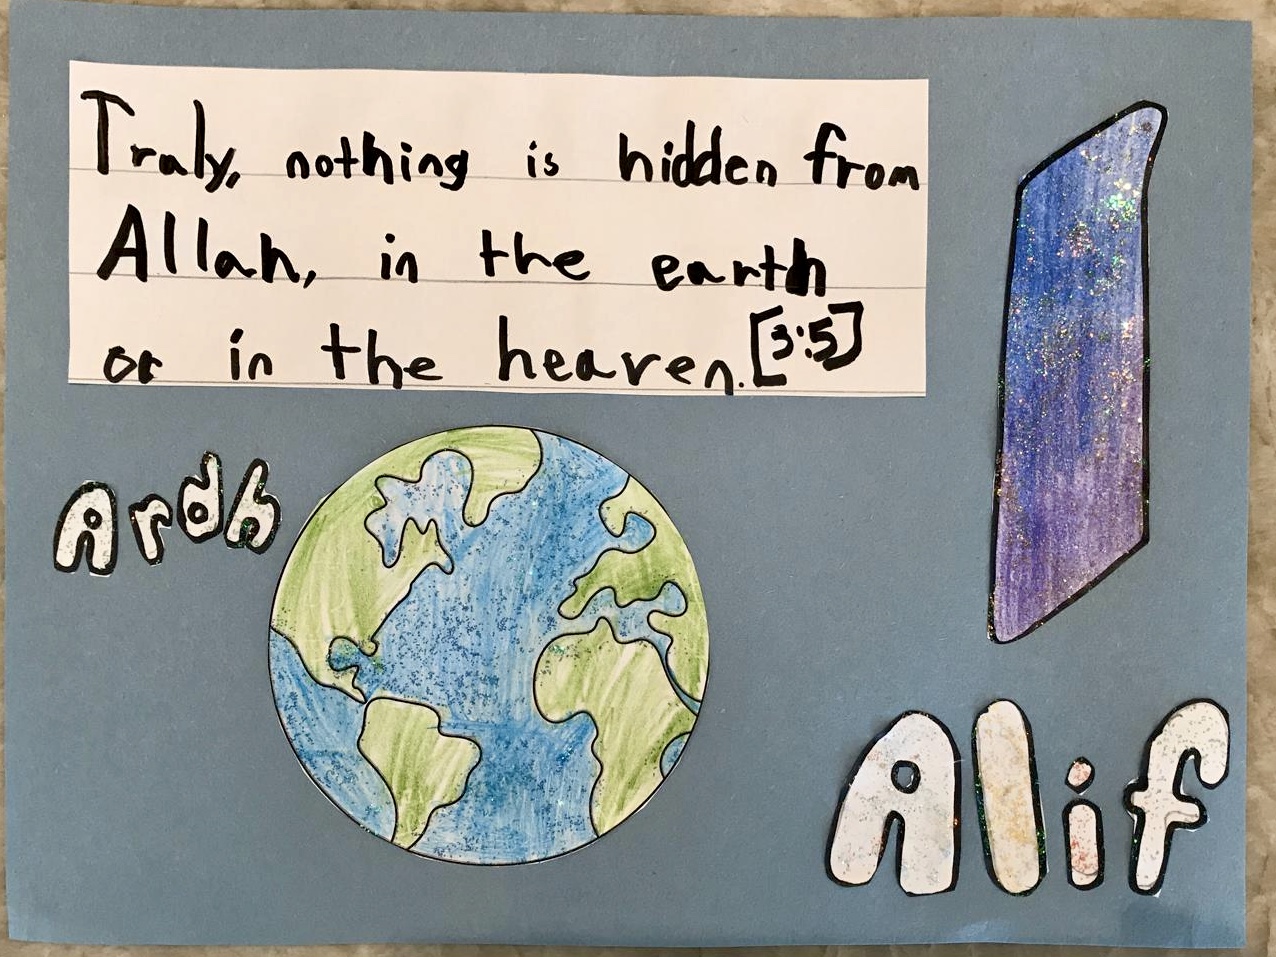 Traly, nothing is hidden from
Allah, in the earth
or in the heaven.[3:5]
Ardh
Alif